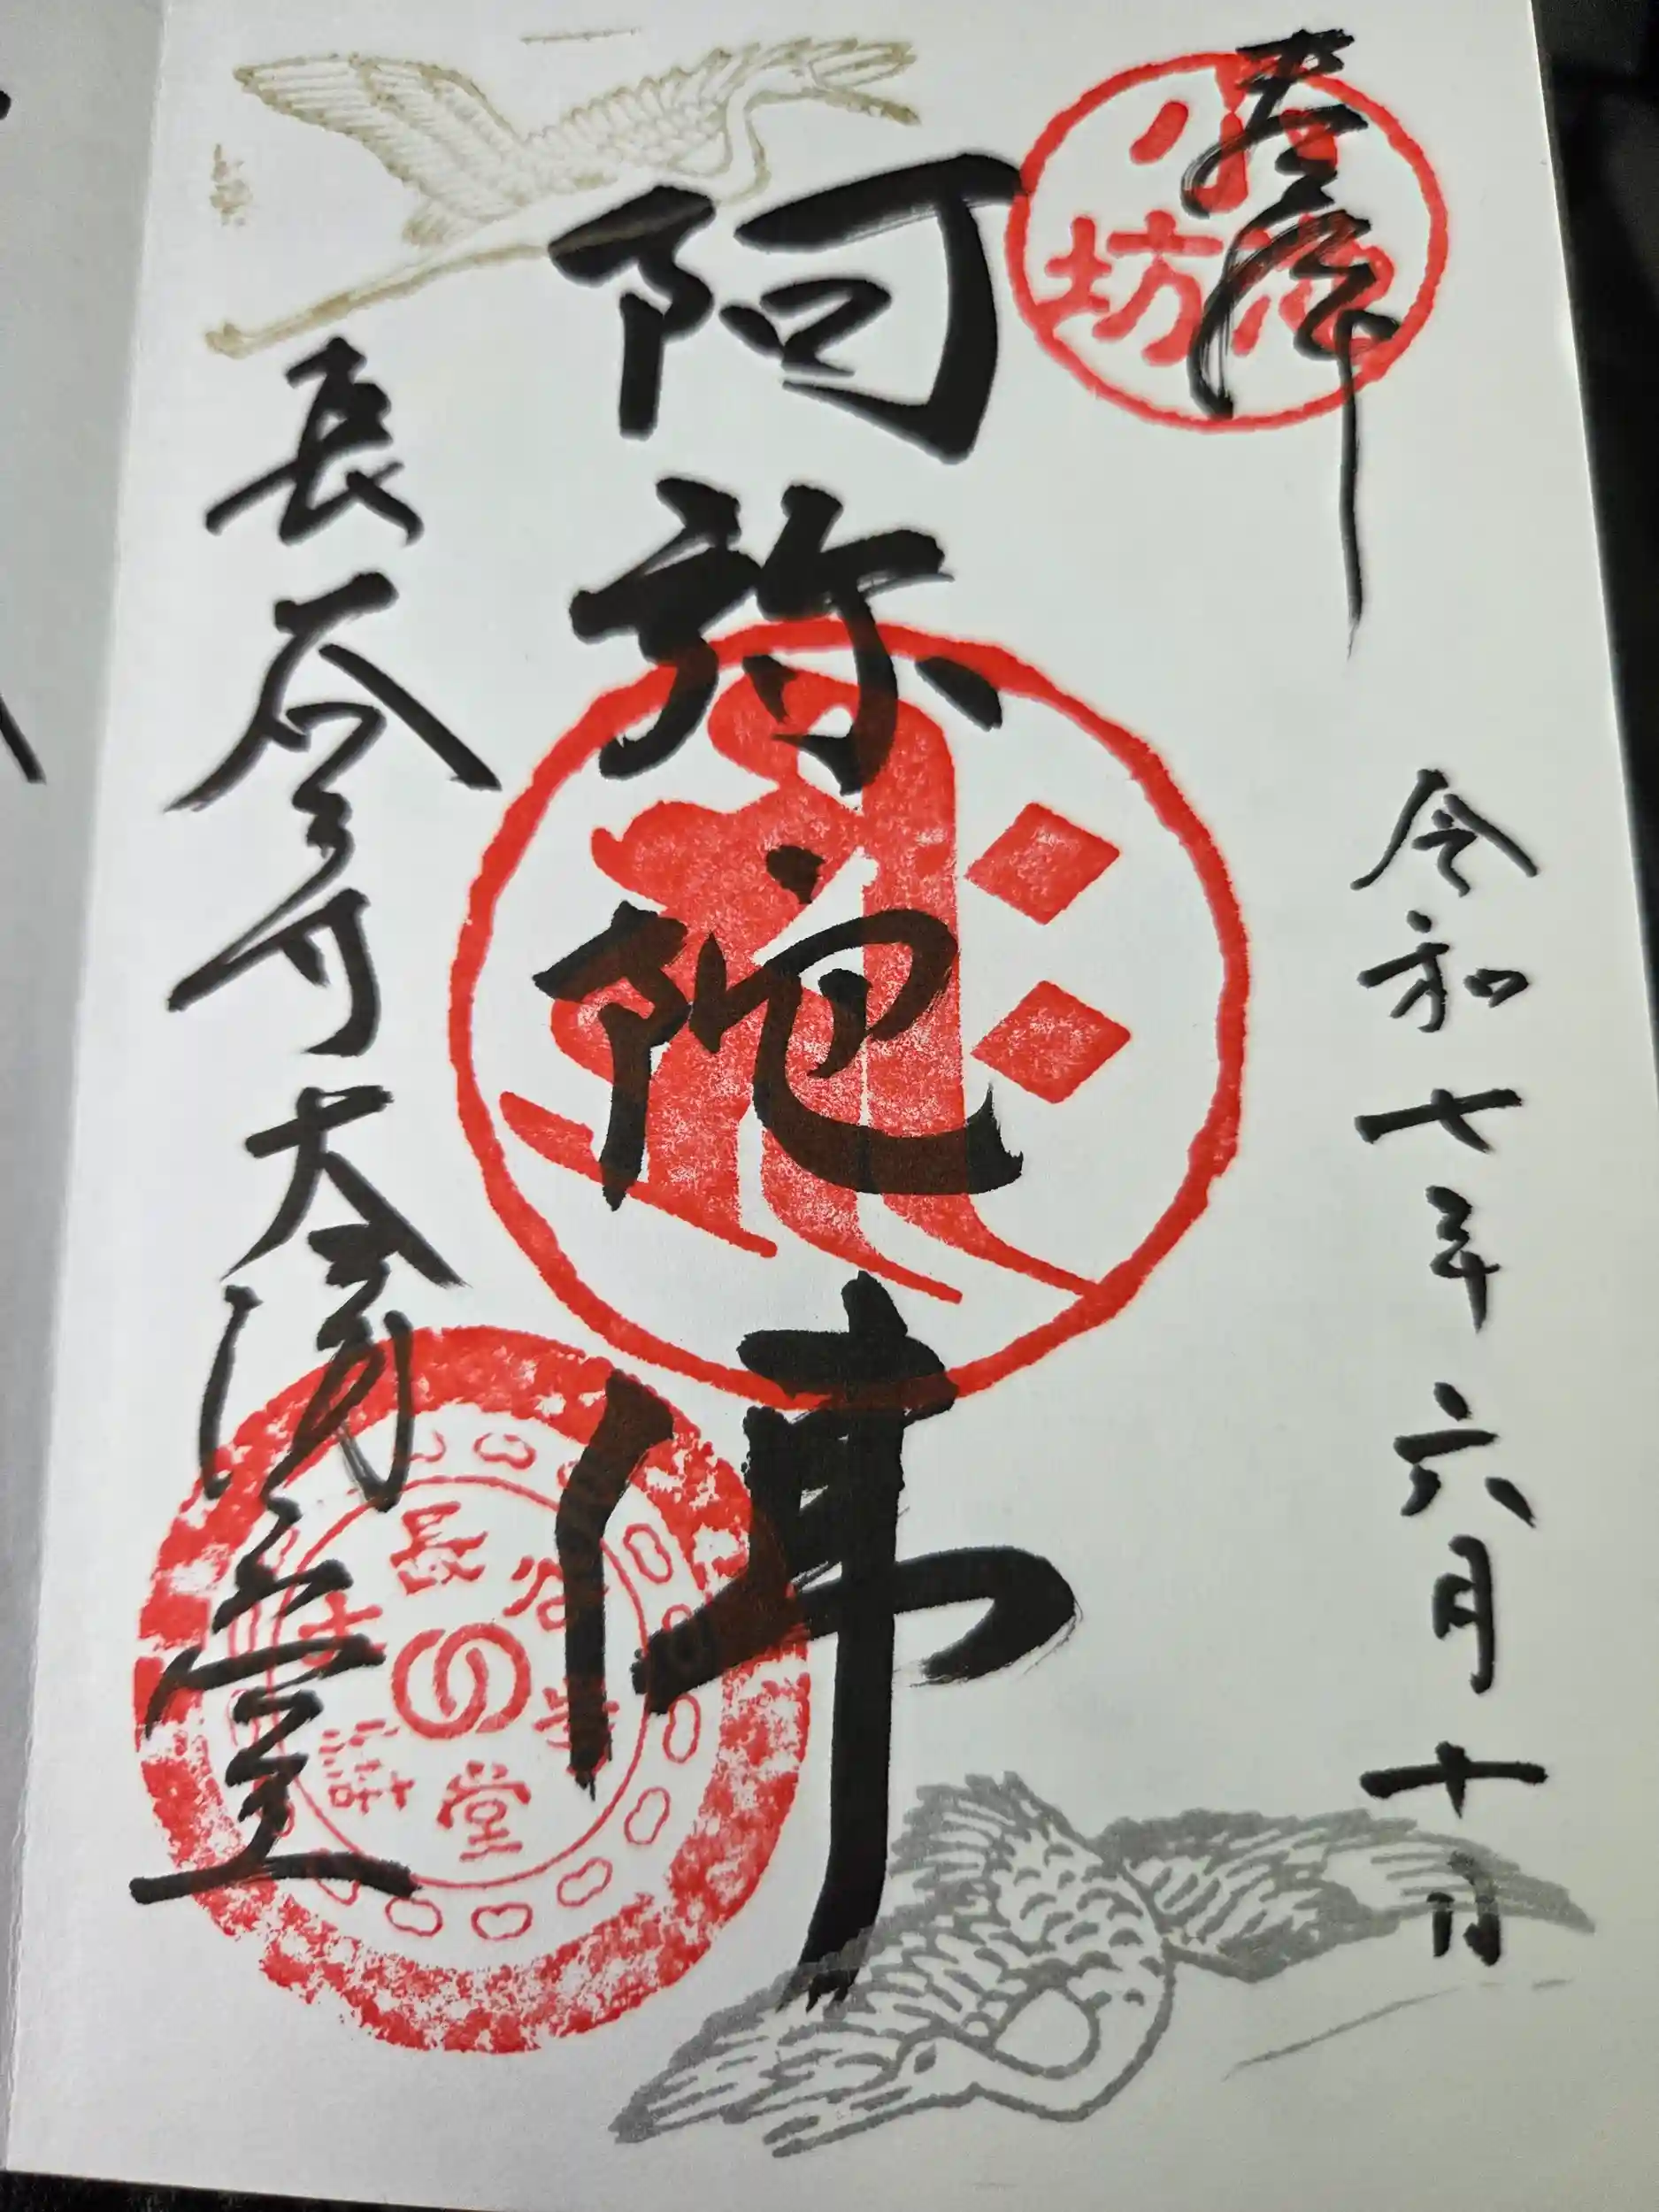 奉拝
小池坊
令和七年六月十日
阿弥陀佛
長谷寺大講堂
長谷寺
大講堂